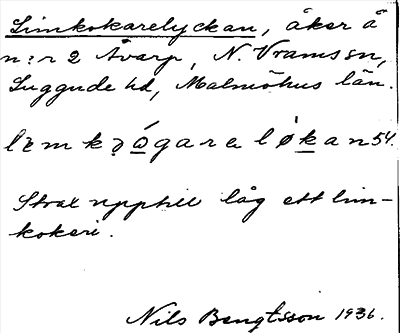 Limkokarelyckan, åker å
n:r 2 Åvarp, N. Vrams sn,
Luggude hd, Malmöhus län.
Strax upptill låg ett lim-
kokeri.
Nils Bengtsson 1936.